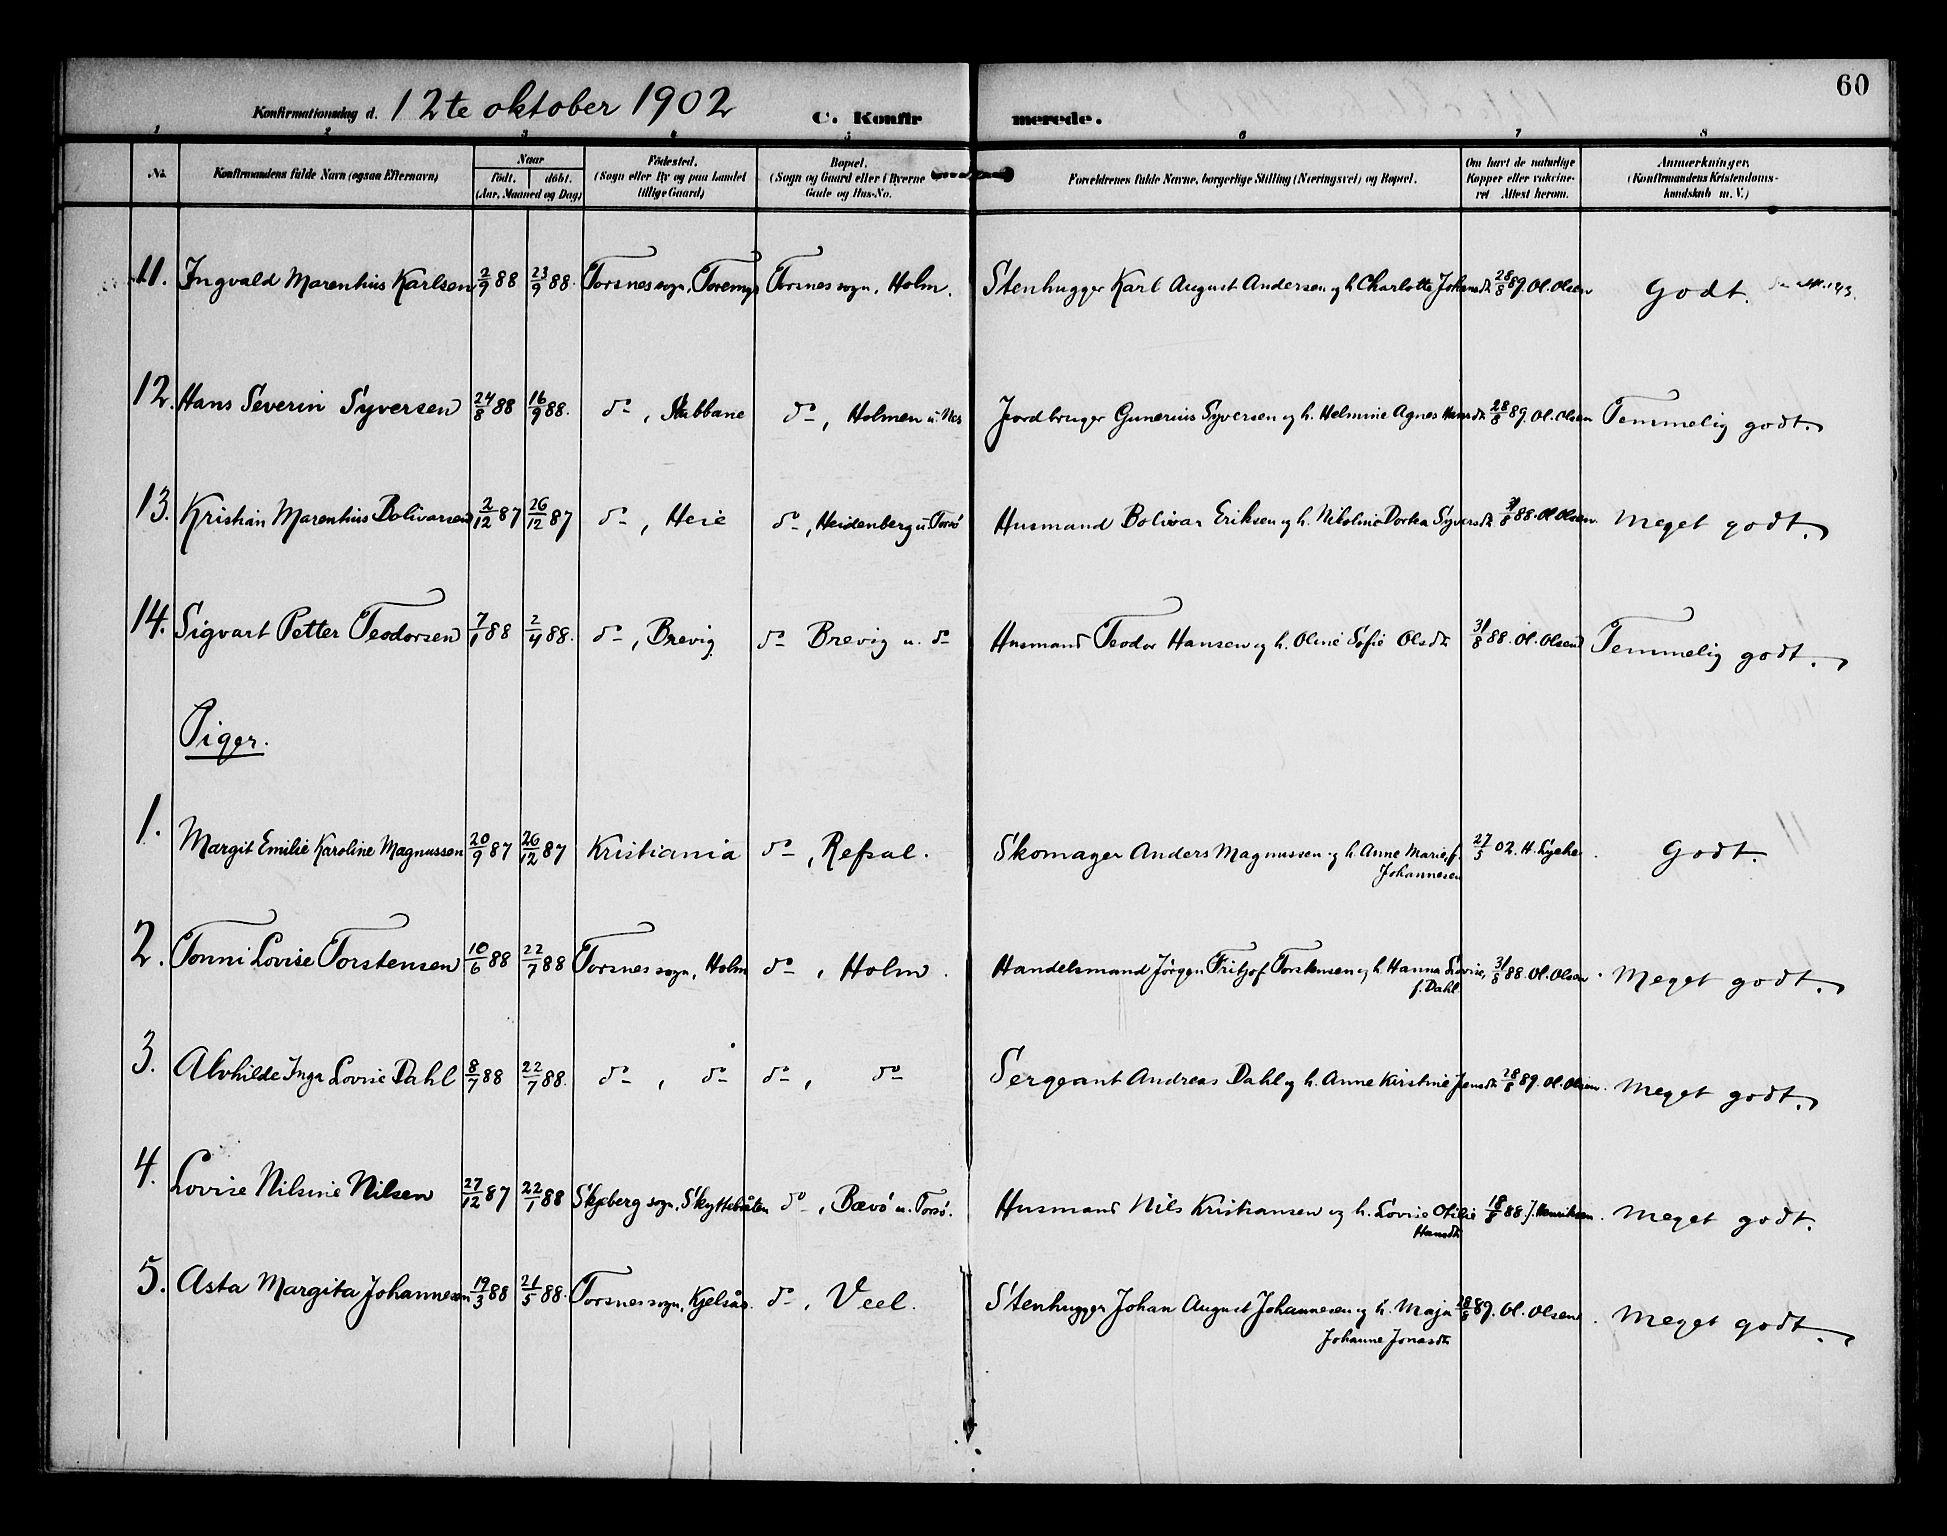 60
Konfirmationsdag d. 12te oktober 1902 C. Konfir merede.
1 2 3 4 5 6 7 8
No. Konfirmandens fulde Navn (ogsaa Efternavn) Naar født. døbt. (Aar, Maaned og Dag) Fødested. (Sogn eller By og paa Landet tillige Gaard) Bopæl. (Sogn og Gaard eller i Byerne Gade og Hus-No. Forældrenes fulde Navne, borgerlige Stilling (Næringsvei) og Bopæl. Om havt de naturlige Kopper eller vaccineret Attest herom. Anmærkninger. (Konfirmandens Kristendomskundskab m. V.)
11. Ingvald Marenhius Karlsen 2/9 88 23/9 88. Torsnes sogn, Toremyr Torsnes sogn, Holm. Stenhugger Karl August Andersen og h. Charlotte Johansdt. 28/8 89. Ol. Olsen Godt.
12. Hans Severin Syversen 24/8 88 16/9 88. do, Stubbane do, Holmen u. Nes Jordbruger Gunerius Syversen og h. Helmine Agnes Hansdt. 28/8 89. Ol. Olsen Temmelig godt.
13. Kristian Marenhius Bolivarsen 2/12 87 26/12 87 do, Heie do, Heidenberg u. Torsø Husmand Bolivar Eriksen og h. Nikoline Dortea Syversdt. 31/8 88. Ol. Olsen. Meget godt.
14. Sigvart Petter Teodorsen 7/1 88 2/4 88. do, Brevig do Brevig u. do Husmand Teodor Hansen og h. Oline Sofie Olsdt. 31/8 88. Ol. Olsen Temmelig godt.
Piger.
1. Margit Emilie Karoline Magnussen 20/9 87 26/12 87 Kristiania do, Refsal. Skomager Anders Magnussen og h. Anne Marie, f. Johannesen 27/5 02. H. Lyche. Godt.
2. Tonni Lovise Torstensen 10/6 88 22/7 88 Torsnes sogn, Holm do, Holm. Handelsmand Jörgen Fritjof Torstensen og h. Hanna Lovise, f. Dahl. 31/8 88. Ol. Olsen. Meget godt.
3. Alvhilde Inga Lovise Dahl 8/7 88 22/7 88. do, do do, do Sergeant Andreas Dahl og h. Anne Kirstine Jensdt. 28/8 89. Ol. Olsen. Meget godt.
4. Lovise Nilsine Nilsen 27/12 87 22/1 88 Skjeberg sogn, Skyttebråten do, Bævø u. Torsø. Husmand Nils Kristiansen og h. Lovise Otilie Hansdt. 18/8 88. J. Henriksen. Meget godt.
5. Asta Margita Johannesen 19/3 88 21/5 88. Torsnes sogn, Kjelsås. do, Veel. Stenhugger Johan August Johannesen og h. Maja Johanne Jonasdt. 28/8 89. Ol. Olsen. Meget godt.